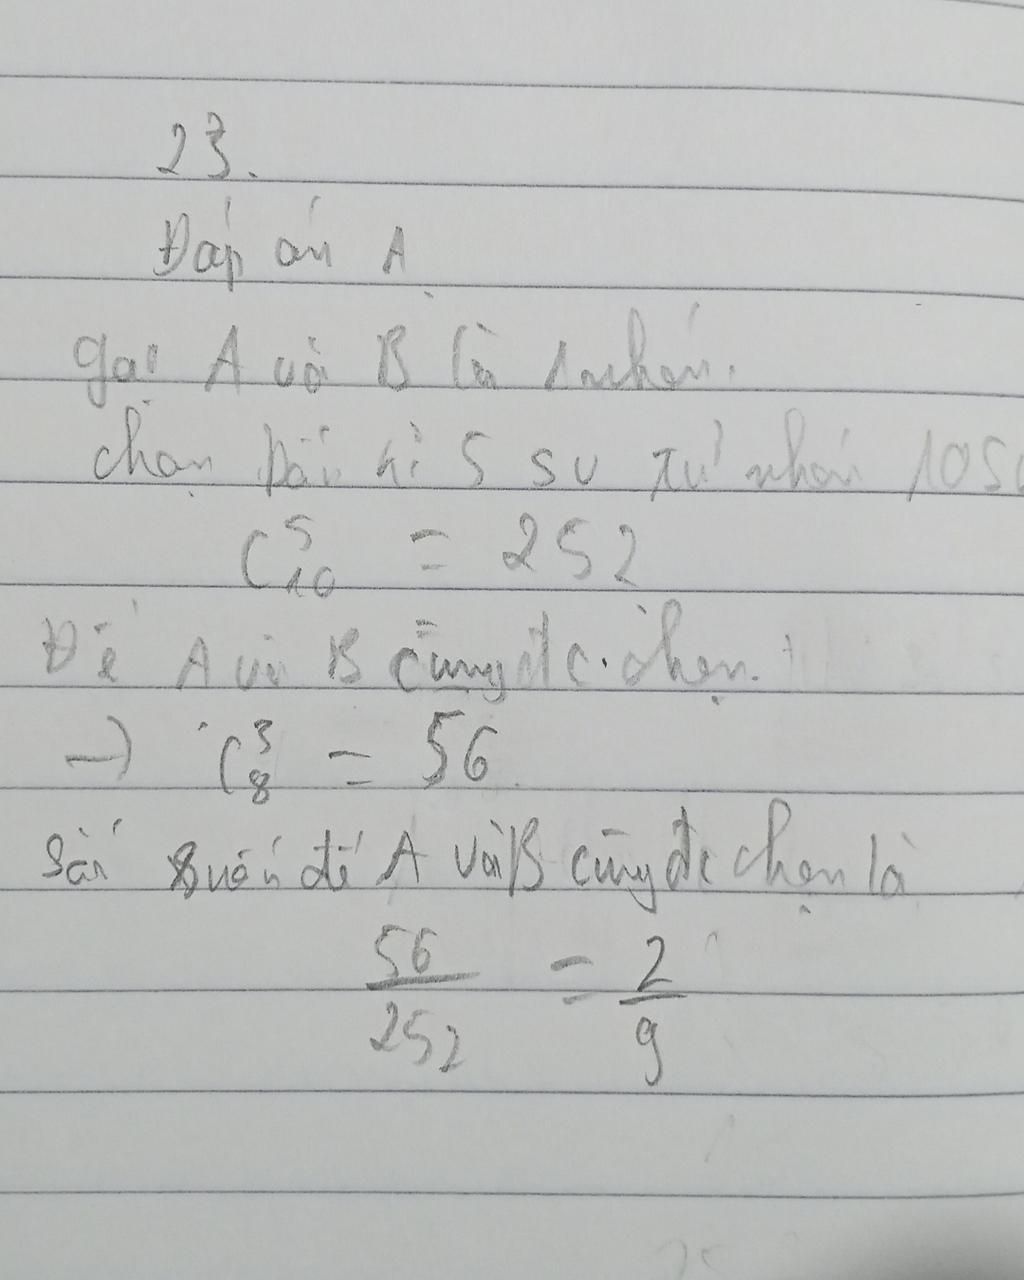 23.
Đáp án A
gọi A và B là 1 nhóm.
chọn bất kì 5 sv từ nhóm 10 sv
C⁵₁₀ = 252
Để A và B cùng đc chọn.
→ C³₈ = 56
Sắc suất để A và B cùng đc chọn là
56/252 = 2/9